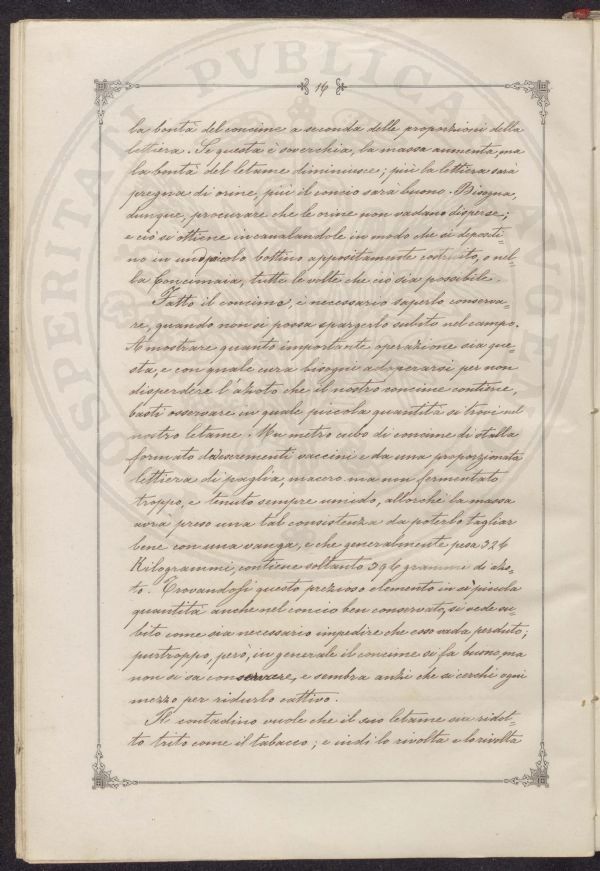 OSPERITATI PVBLICAE AVGEN
16
la bontà del concime a seconda delle proporzioni della
lettiera. Se questa è soverchia, la massa aumenta, ma
la bontà del letame diminuisce; più la lettiera sarà
pregna di orine, più il concio sarà buono. Bisogna,
dunque, procurare che le orine non vadano disperse;
e ciò si ottiene incanalandole in modo che si deposit-
no in un piccolo bottino appositamente costruito, o nel-
la Concimaia, tutte le volte che ciò sia possibile.
Fatto il concime, è necessario saperlo conserva-
re, quando non si possa spargerlo subito nel campo.
A mostrare quanto importante operazione sia que-
sta, e con quale cura bisogni adoperarsi per non
disperdere l'azoto che il nostro concime contiene,
basti osservare in quale piccola quantità si trovi nel
nostro letame. Un metro cubo di concime di stalla
formato da escrementi vaccini e da una proporzionata
lettiera di paglia, macero ma non fermentato
troppo, e tenuto sempre umido, allorchè la massa
avrà preso una tal consistenza da poterlo tagliar
bene con una vanga, e che generalmente pesa 326
Kilogrammi, contiene soltanto 396 grammi di azo-
to. Trovandosi questo prezioso elemento in sì piccola
quantità anche nel concio ben conservato, si vede su-
bito come sia necessario impedire che esso vada perduto;
purtroppo, però, in generale il concime si fa buono, ma
non si sa conservare, e sembra anzi che si cerchi ogni
mezzo per ridurlo cattivo.
Il contadino vuole che il suo letame sia ridot-
to trito come il tabacco; e indi lo rivolta e lo rivolta